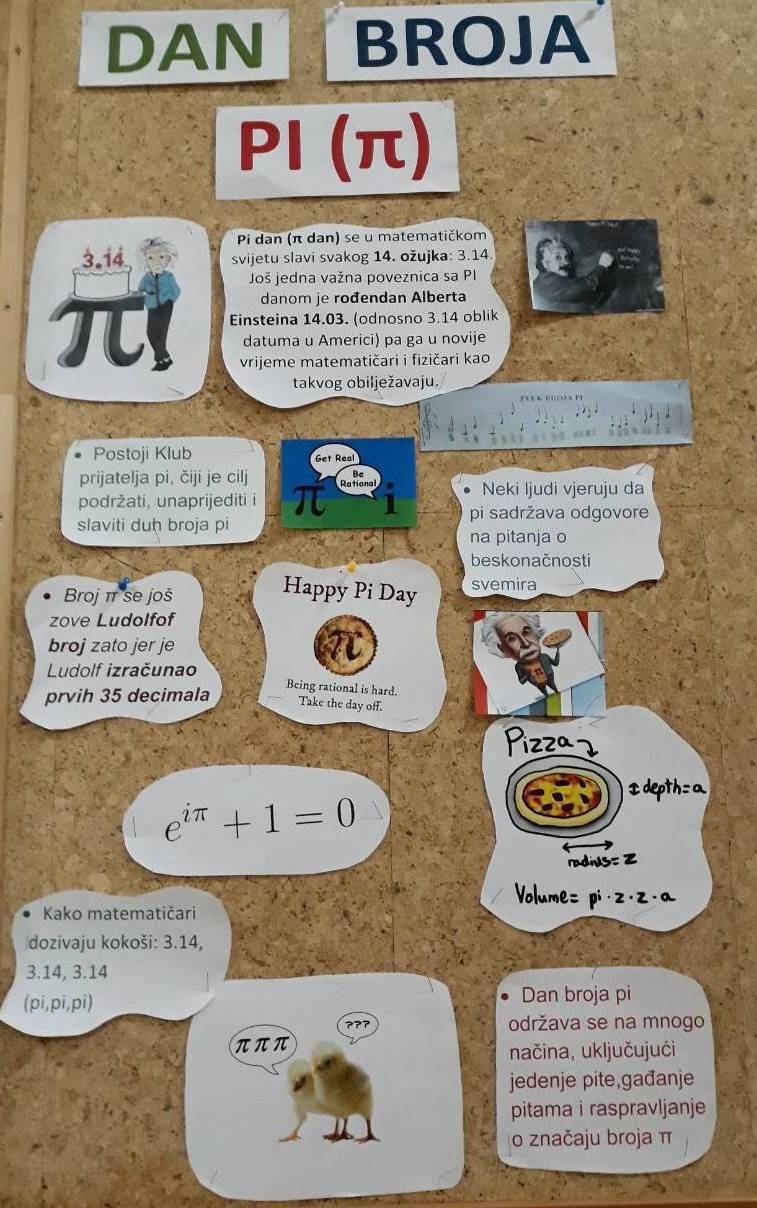 DAN BROJA
PI (π)
3.14
Pi dan (π dan) se u matematičkom
svijetu slavi svakog 14. ožujka: 3.14.
Još jedna važna poveznica sa PI
danom je rođendan Alberta
Einsteina 14.03. (odnosno 3.14 oblik
datuma u Americi) pa ga u novije
vrijeme matematičari i fizičari kao
takvog obilježavaju.
ZVUK BROJA PI
• Postoji Klub
prijatelja pi, čiji je cilj
podržati, unaprijediti i
slaviti duh broja pi
Get Real
Be
Rational
π i
• Neki ljudi vjeruju da
pi sadržava odgovore
na pitanja o
beskonačnosti
svemira
• Broj π se još
zove Ludolfof
broj zato jer je
Ludolf izračunao
prvih 35 decimala
Happy Pi Day
π
Being rational is hard.
Take the day off.
π
Pizza
depth=a
radius=z
Volume= pi·z·z·a
e^{iπ} + 1 = 0
• Kako matematičari
dozivaju kokoši: 3.14,
3.14, 3.14
(pi,pi,pi)
π π π
???
• Dan broja pi
održava se na mnogo
načina, uključujući
jedenje pite,gađanje
pitama i raspravljanje
o značaju broja π